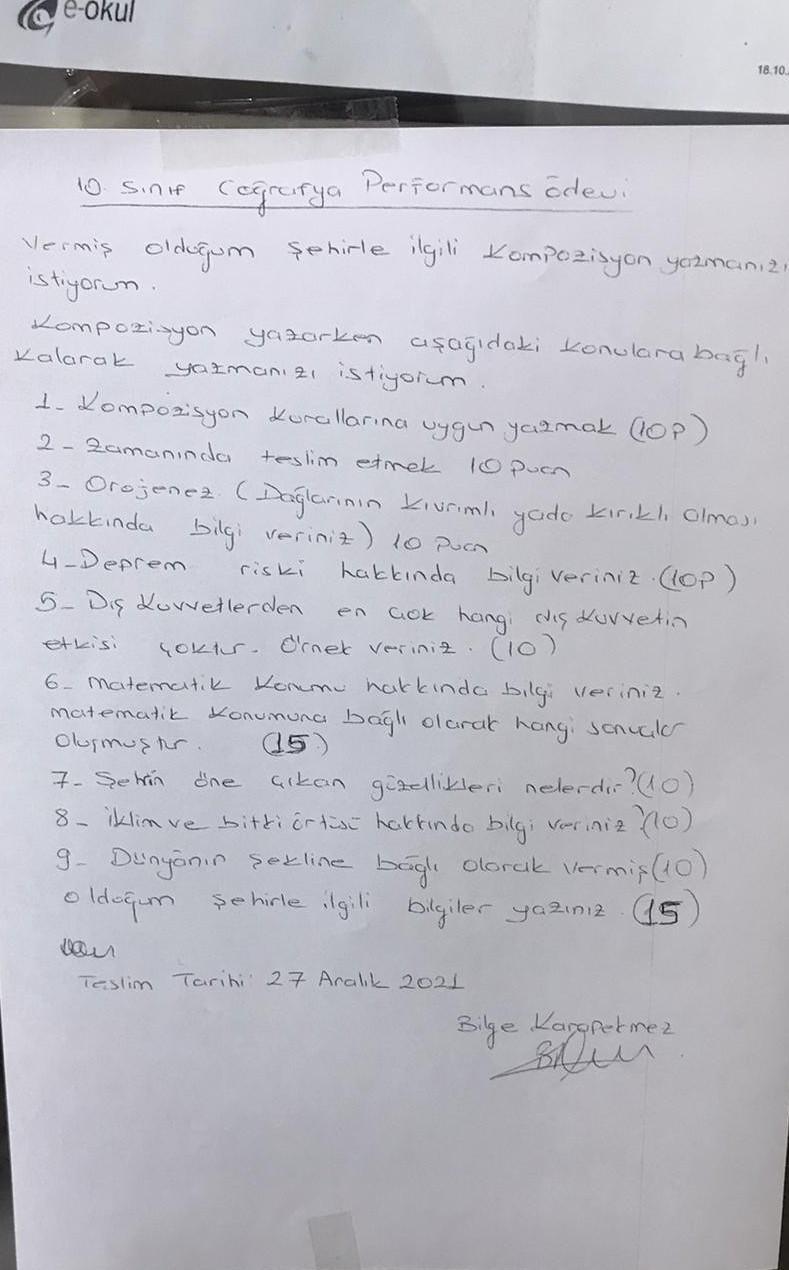 e-okul
18.10.
10. Sınıf Coğrafya Performans ödevi
Vermiş olduğum şehirle ilgili kompozisyon yazmanızı
istiyorum.
Kompozisyon yazarken aşağıdaki konulara bağlı
Kalarak yazmanızı istiyorum.
1- Kompozisyon kurallarına uygun yazmak (10P)
2- Zamanında teslim etmek 10 Puan
3- Orojenez. (Dağlarının kıvrımlı yada kırıklı olması
hakkında bilgi veriniz) 10 Puan
4-Deprem riski hakkında bilgi veriniz. (10P)
5- Dış Kuvvetlerden en çok hangi dış kuvvetin
etkisi çoktur. Örnek veriniz. (10)
6- Matematik Konumu hakkında bilgi veriniz.
matematik Konumuna bağlı olarak hangi sonuçlar
Oluşmuştur. (15)
7- Şehrin öne çıkan güzellikleri nelerdir? (10)
8- iklim ve bitki örtüsü hakkında bilgi veriniz? (10)
9- Dünyanın Şekline bağlı olarak vermiş (10)
olduğum şehirle ilgili bilgiler yazınız. (15)
Teslim Tarihi: 27 Aralık 2021
Bilge Karapekmez